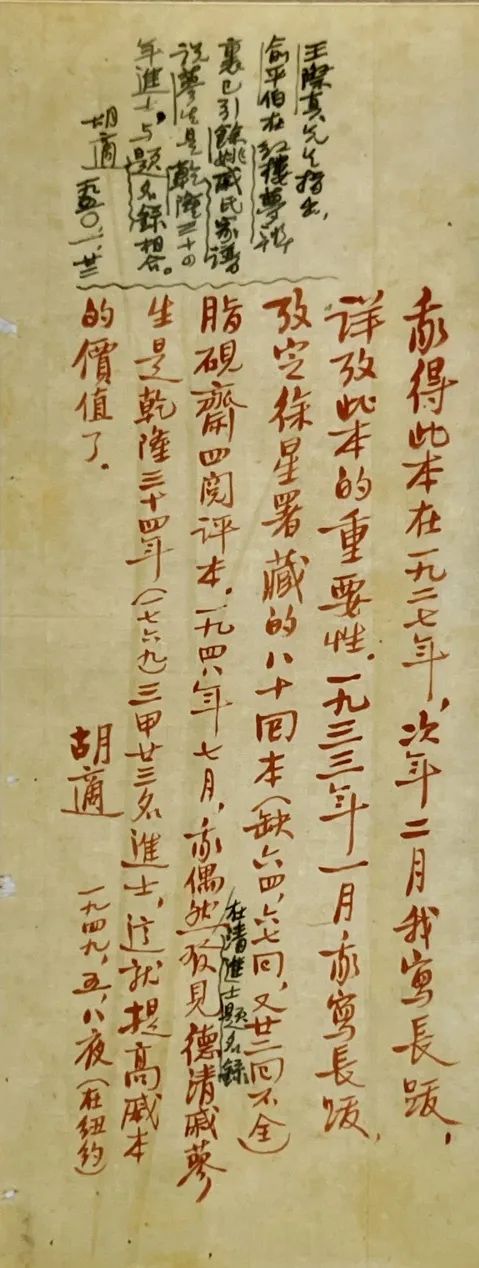 我得此本在一九二七年，次年二月我寫長跋，
詳攷此本的重要性。一九三三年一月我寫長跋，
攷定徐星署藏的八十回本（缺六四，六七回，又廿二回不全）
脂硯齋四閱評本。一九四八年七月，我偶然發見德清戚蓼
在清進士題名錄
生是乾隆三十四年（一七六九）三甲廿三名進士，這就提高戚本
的價值了。
胡適 一九四九，五，八夜（在紐約）
王際真先生指出，
俞平伯在紅樓夢辨
裏已引餘姚戚氏家譜
說蓼生是乾隆三十四
年進士，与題名錄相合。
胡適 一九五〇，一，廿三